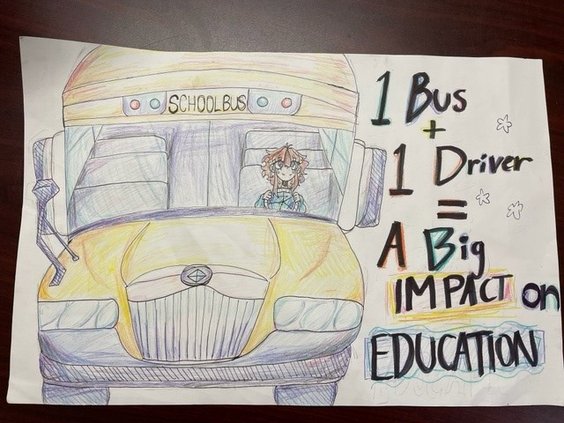 SCHOOLBUS
1 Bus
+
1 Driver
=
A Big
IMPACT on
EDUCATION